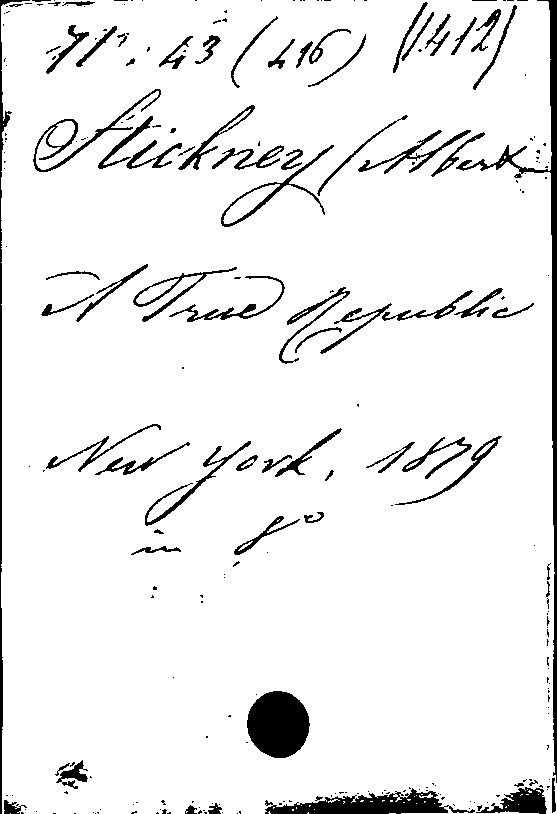 43 (416) (1412)
Stickney (Albert
A True Republic
New York, 1879
in 8º